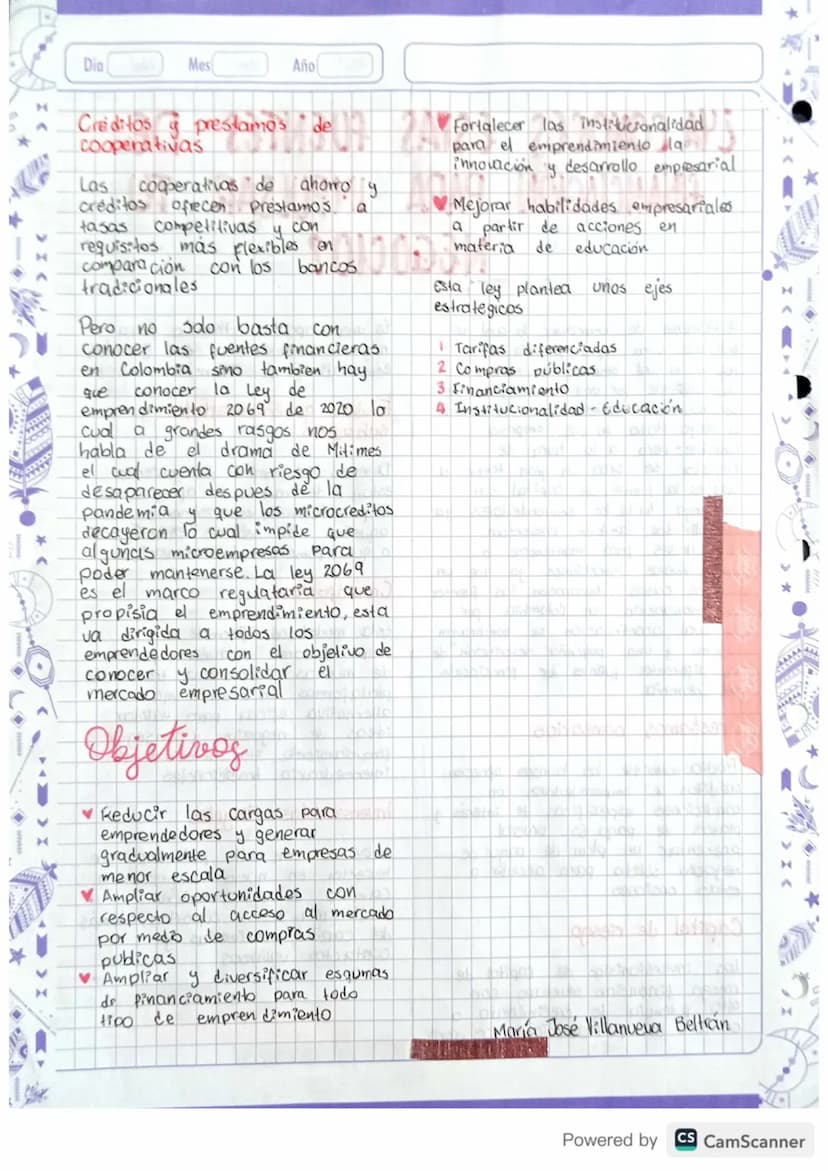 Día
Mes
Año
Créditos y prestamos de
cooperativas
Las cooperativas de ahorro y
créditos ofrecen prestamos a
tasas competitivas y con
requisitos más flexibles en
comparación con los bancos
tradicionales
Pero no solo basta con
conocer las fuentes financieras
en Colombia sino tambien hay
que conocer la Ley de
emprendimiento 2069 de 2020 lo
cual a grandes rasgos nos
habla de el drama de Mitimes
el cual cuenta con riesgo de
desaparecer despues de la
pandemia y que los microcreditos
decayeron lo cual impide que
algunas microempresas para
poder mantenerse. La ley 2069
es el marco regulataria que
propisia el emprendimiento, esta
va dirigida a todos los
emprendedores con el objetivo de
conocer y consolidar el
mercado empresarial
Objetivos
Reducir las cargas para
emprendedores y generar
gradualmente para empresas de
menor escala
Ampliar oportunidades con
respecto al acceso al mercado
por medio de compras
publicas
Ampliar y diversificar esqumas
de financiamiento para todo
tipo de emprendimiento
Fortalecer las institucionalidad
para el emprendimiento la
innovación y desarrollo empresarial
Mejorar habilidades empresariales
a partir de acciones en
materia de educación
Esta ley plantea unos ejes
estrategicos
1 Tarifas diferenciadas
2 Compras públicas
3 Financiamiento
4 Institucionalidad - Educación
María José Villanueva Beltrán
Powered by CS CamScanner